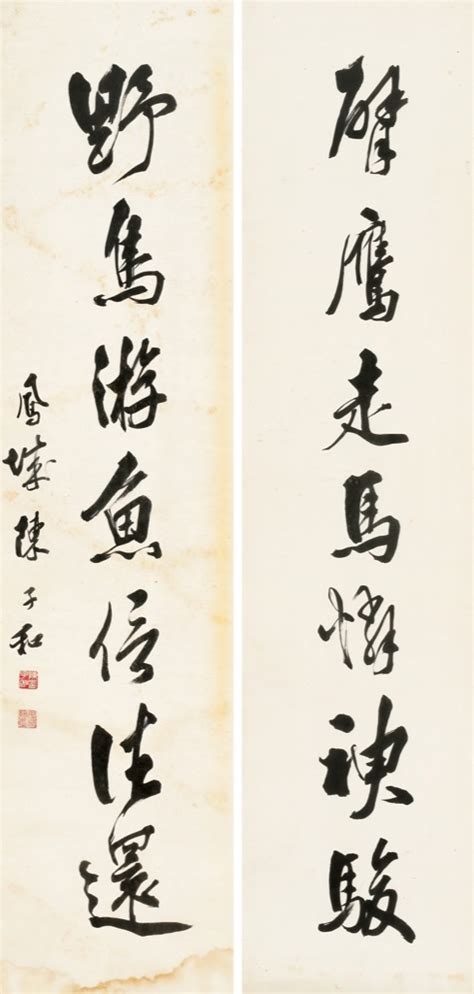 臂鷹走馬憐神駿
野鳥游魚信往還
鳳城陳子和